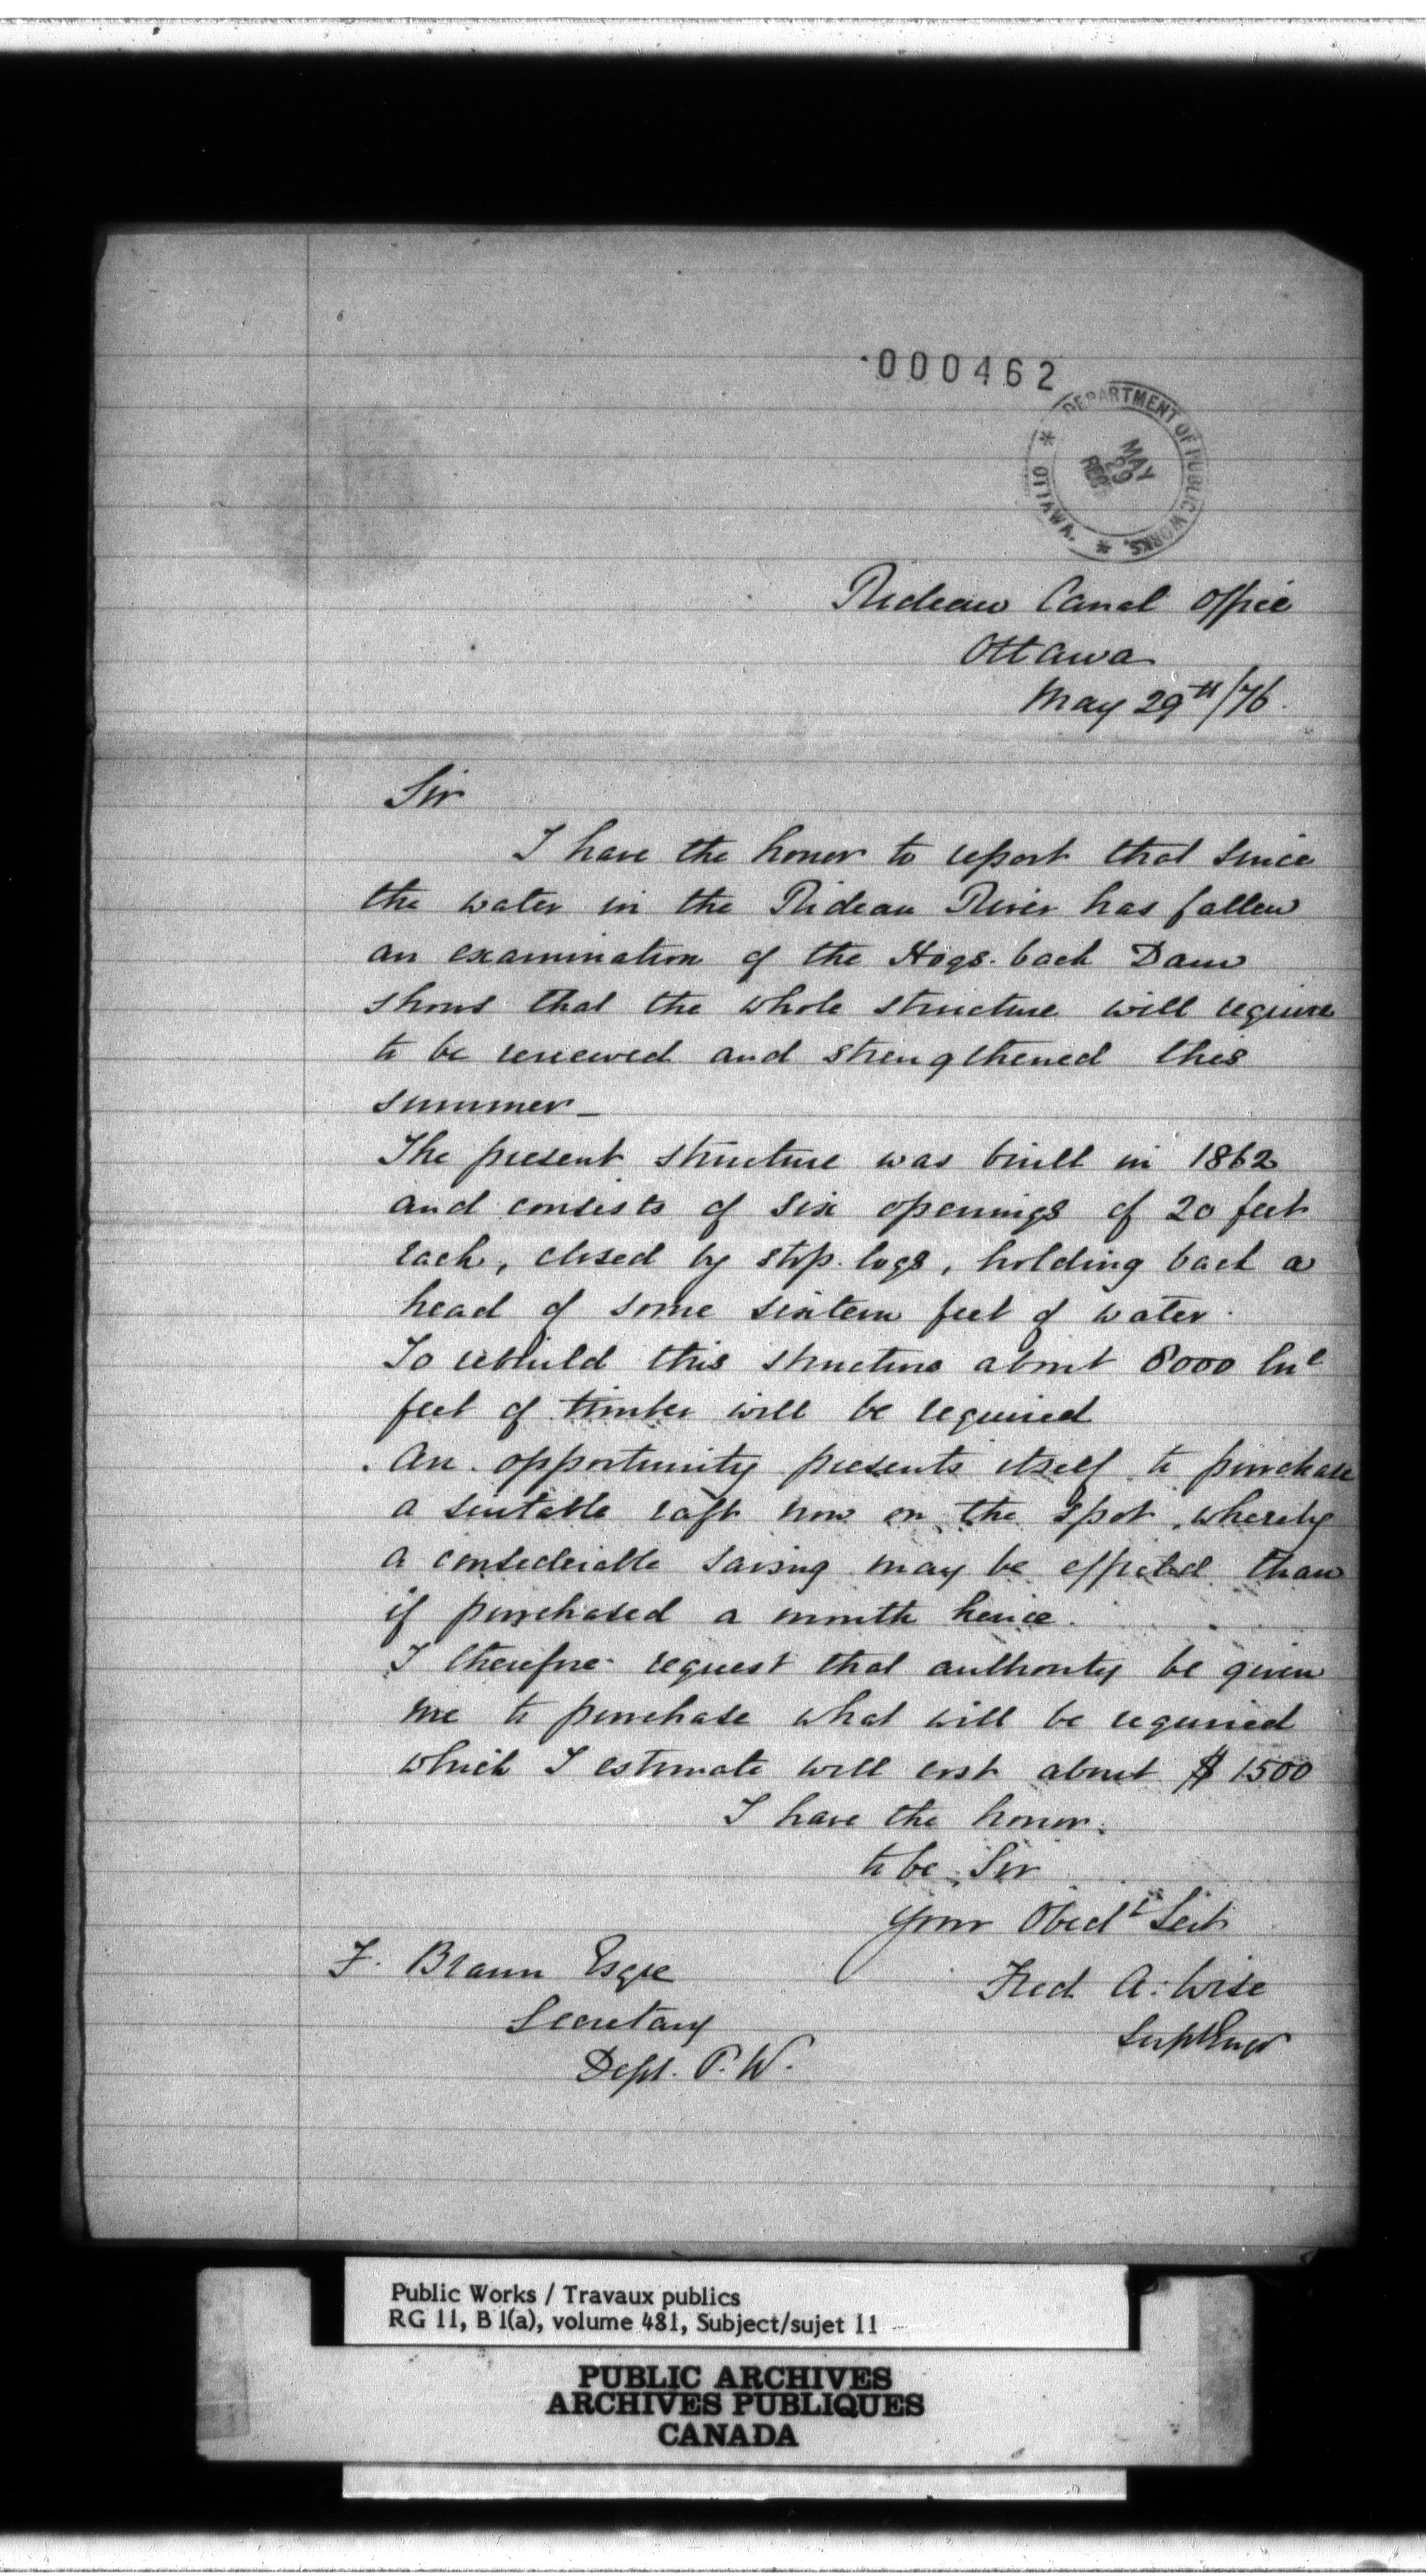 000462
DEPARTMENT OF PUBLIC WORKS.
OTTAWA.
MAY
29
REC'D
Rideau Canal Office
Ottawa
May 29th/76.
Sir
I have the honor to report that since
the water in the Rideau River has fallen
an examination of the Hogs-back Dam
shows that the whole structure will require
to be renewed and strengthened this
summer_
The present structure was built in 1862
and consists of six openings of 20 feet
each, closed by stop logs, holding back a
head of some sixteen feet of water.
To rebuild this structure about 8000 lnl
feet of timber will be required
An opportunity presents itself to purchase
a suitable raft now on the spot, whereby
a considerable saving may be effected than
if purchased a month hence.
I therefore request that authority be given
me to purchase what will be required
which I estimate will cost about $1500
I have the honor
to be Sir
Your Obedt Sert
F. Braun Esqre
Fred A. Wise
Secretary
Supt Engr
Dept. P.W.
Public Works / Travaux publics
RG 11, B 1(a), volume 481, Subject/sujet 11
PUBLIC ARCHIVES
ARCHIVES PUBLIQUES
CANADA